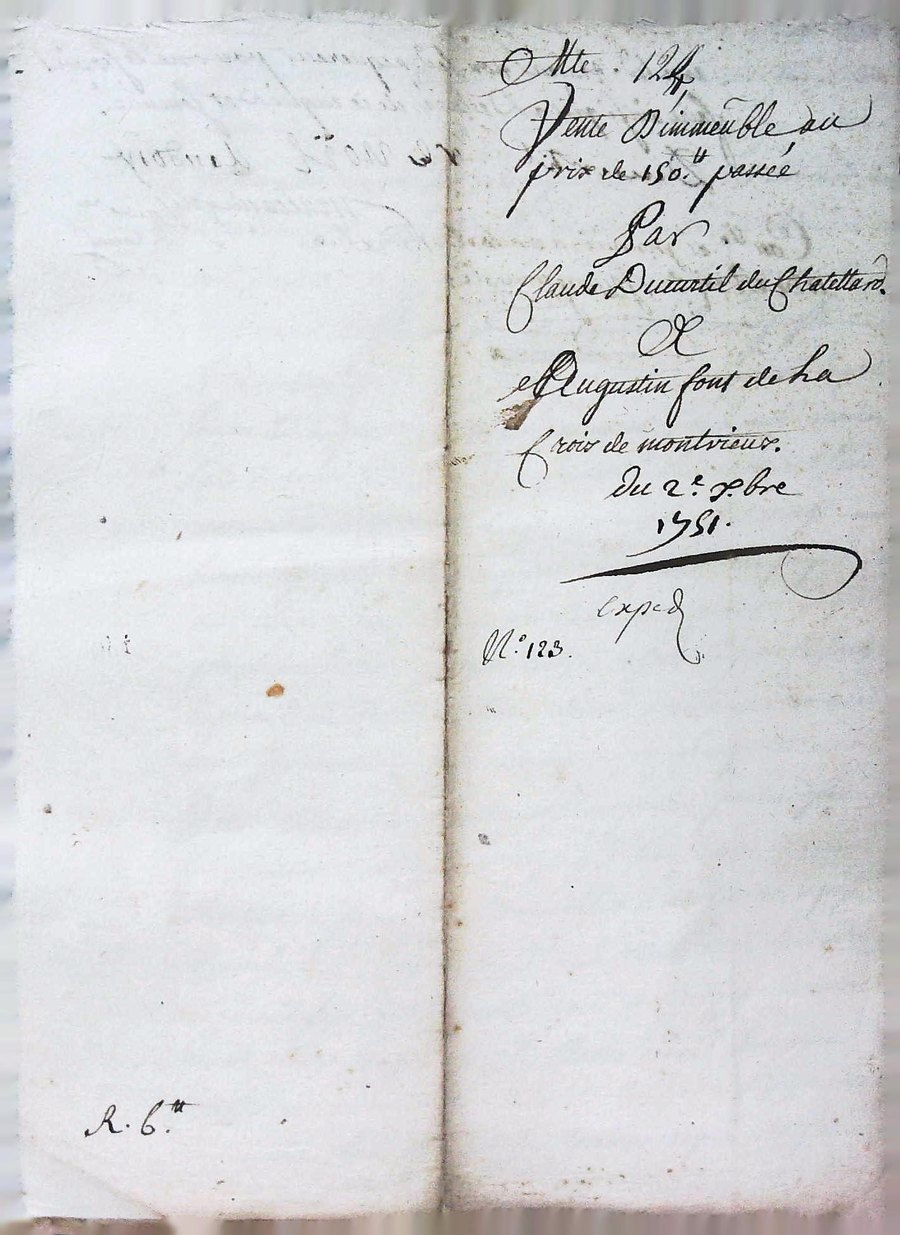 Vente D'immeuble au
prix de 150ᵗᵗ passée
Par
Claude Ducurtil du Chatellard.
A
Augustin font de La
Croix de montvieux.
du 2.e x.bre
1751.
exped
N.o 123.
R. 6.ᵗᵗ